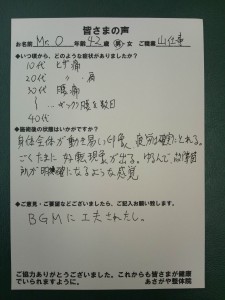 皆さまの声
お名前 Mr. O 年齢 42 歳 男・女 ご職業 山仕事
◆いつ頃から、どのような症状がありましたか?
10代 ヒザ痛
20代 〃 肩
30代 腰痛
ギックリ腰を数回
40代
◆施術後の状態はいかがですか?
身体全体が動き易い印象 疲労は確実にとれる。
ごくたまに 好転現象が出る。ゆるんで、
所が明確になるような感覚
◆ご意見・ご要望などございましたら、ご記入お願い致します。
BGMに工夫されたし。
ご協力ありがとうございました。これからも皆さまが健康
でいられますように。 あさがや整体院